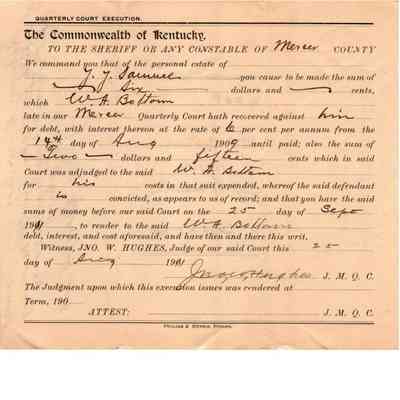 QUARTERLY COURT EXECUTION.
The Commonwealth of Kentucky,
TO THE SHERIFF OR ANY CONSTABLE OF Mercer COUNTY
We command you that of the personal estate of
J. J. Samuel you cause to be made the sum of
Six dollars and — cents,
which W. A. Bottom
late in our Mercer Quarterly Court hath recovered against him
for debt, with interest thereon at the rate of 6 per cent per annum from the
14th day of Aug 1909 until paid; also the sum of
Two dollars and fifteen cents which in said
Court was adjudged to the said W. A. Bottom
for his costs in that suit expended, whereof the said defendant
is convicted, as appears to us of record; and that you have the said
sums of money before our said Court on the 25 day of Sept
191, to render to the said W. A. Bottom
debt, interest, and cost aforesaid, and have then and there this writ.
Witness, JNO. W. HUGHES, Judge of our said Court this 25
day of Aug 191
Jno W Hughes J. M. Q. C.
The Judgment upon which this execution issues was rendered at
Term, 190
ATTEST: J. M. Q. C.